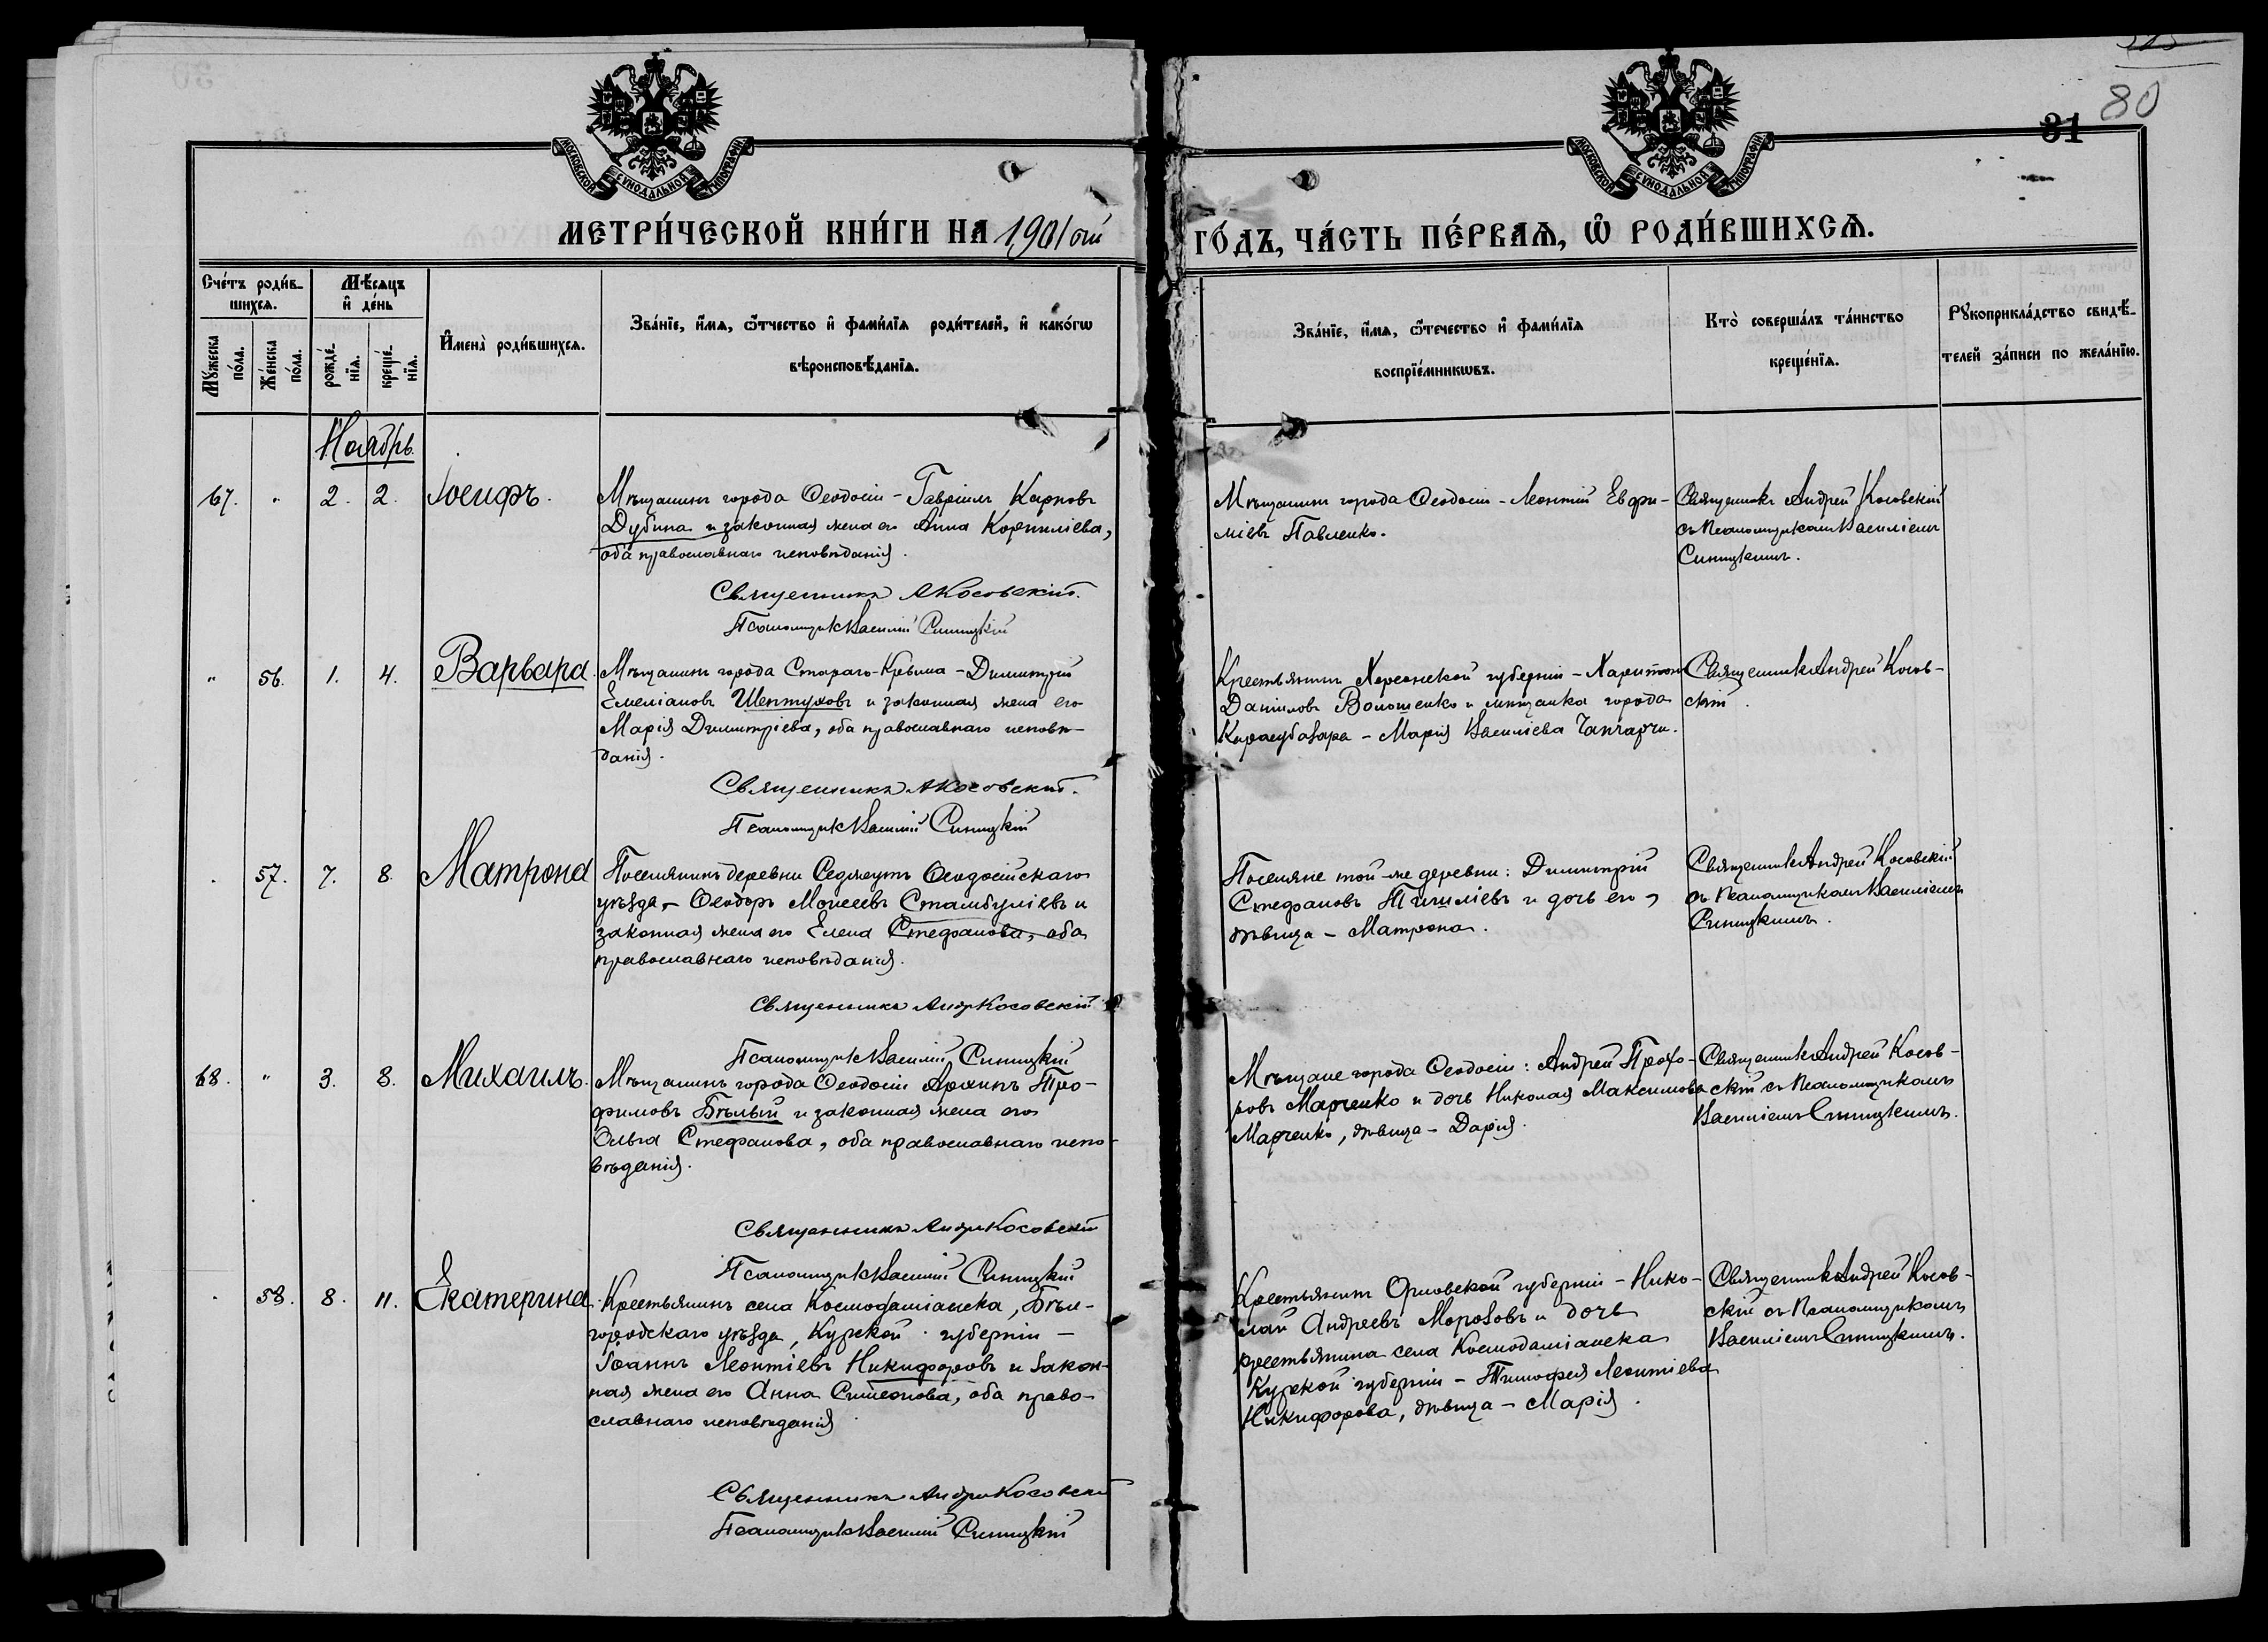 80
81
МОСКОВСКОЙ СУНОДАЛЬНОЙ ТИПОГРАФІИ
МОСКОВСКОЙ СУНОДАЛЬНОЙ ТИПОГРАФІИ
МЕТРИ́ЧЕСКОЙ КНИ́ГИ НА 1901 ой ГО́ДЪ, ЧА́СТЬ ПЕ́РВАѦ, Ѡ҆ РОДИ́ВШИХСѦ.
Сче́тъ роди́в-
шихсѧ.
Мѣ́сѧцъ
и҆ де́нь
Мꙋ́жеска
по́ла.
Же́нска
по́ла.
рожде́-
нїѧ.
креще́-
нїѧ.
И҆мена̀ роди́вшихсѧ.
Зва́нїе, и҆́мѧ, ѻ҆́тчество и҆ фамі́лїѧ роди́телей, и҆ како́гѡ
вѣроисповѣ́данїѧ.
Зва́нїе, и҆́мѧ, ѻ҆́течество и҆ фамі́лїѧ
воспрїе́мникѡвъ.
Кто̀ соверша́лъ та́инство
креще́нїѧ.
Рꙋкоприкла́дство свидѣ́-
телей за́писи по жела́нїю.
Ноябрь.
67. " 2. 2. Іосифъ.
Мѣщанинъ города Ѳеодосіи - Гавріилъ Карповъ
Дубина и законная жена его Анна Корнилiева,
оба православнаго исповѣданія.
Священникъ АКосовскій.
Псаломщикъ Василій Синицкій
Мѣщанинъ города Ѳеодосіи - Леонтій Евфи-
міевъ Павленко.
Священникъ Андрей Косовскій
съ Псаломщикомъ Василіемъ
Синицкимъ.
" 56. 1. 4. Варвара.
Мѣщанинъ города Стараго-Крыма - Димитрій
Емеліановъ Шептуховъ и законная жена его
Марія Димитріева, оба православнаго исповѣ-
данія.
Священникъ АКосовскій.
Псаломщикъ Василій Синицкій
Крестьянинъ Херсонской губерніи - Харитонъ
Даніиловъ Волошенко и мѣщанка города
Карасубазара - Марія Василіева
Священникъ Андрей Косов-
скій.
57. 7. 8. Матрона
Поселянинъ деревни Седжеутъ Ѳеодосійскаго
уѣзда, - Ѳеодоръ Моисеевъ Стамбуліевъ и
законная жена его Елена Стефанова, оба
православнаго исповѣданія.
Священникъ Андр Косовскій
Псаломщикъ Василій Синицкій
Поселяне той-же деревни: Димитрій
Стефановъ и дочь его,
дѣвица - Матрона.
Священникъ Андрей Косовскій
съ Псаломщикомъ Василіемъ
Синицкимъ.
68. " 3. 8. Михаилъ.
Мѣщанинъ города Ѳеодосіи Архипъ Тро-
фимовъ Бѣлый и законная жена его
Ольга Стефанова, оба православнаго испо-
вѣданія.
Священникъ Андр Косовскій
Псаломщикъ Василій Синицкій
Мѣщане города Ѳеодосіи: Андрей Прохо-
ровъ Марченко и дочь Николая Максимова
Марченко, дѣвица - Дарія.
Священникъ Андрей Косов-
скій съ Псаломщикомъ
Василіемъ Синицкимъ.
58. 8. 11. Екатерина.
Крестьянинъ села Космодаміанска, Бѣл-
городскаго уѣзда, Курской губерніи -
Іоаннъ Леонтіевъ Никифоровъ и закон-
ная жена его Анна Симеонова, оба право-
славнаго исповѣданія
Священникъ Андр Косовскій
Псаломщикъ Василій Синицкій
Крестьянинъ Орловской губерніи - Нико-
лай Андреевъ Морозовъ и дочь
крестьянина села Космодаміанска
Курской губерніи - Тимофея Леонтіева
Никифорова, дѣвица - Марія.
Священникъ Андрей Косов-
скій съ Псаломщикомъ
Василіемъ Синицкимъ.